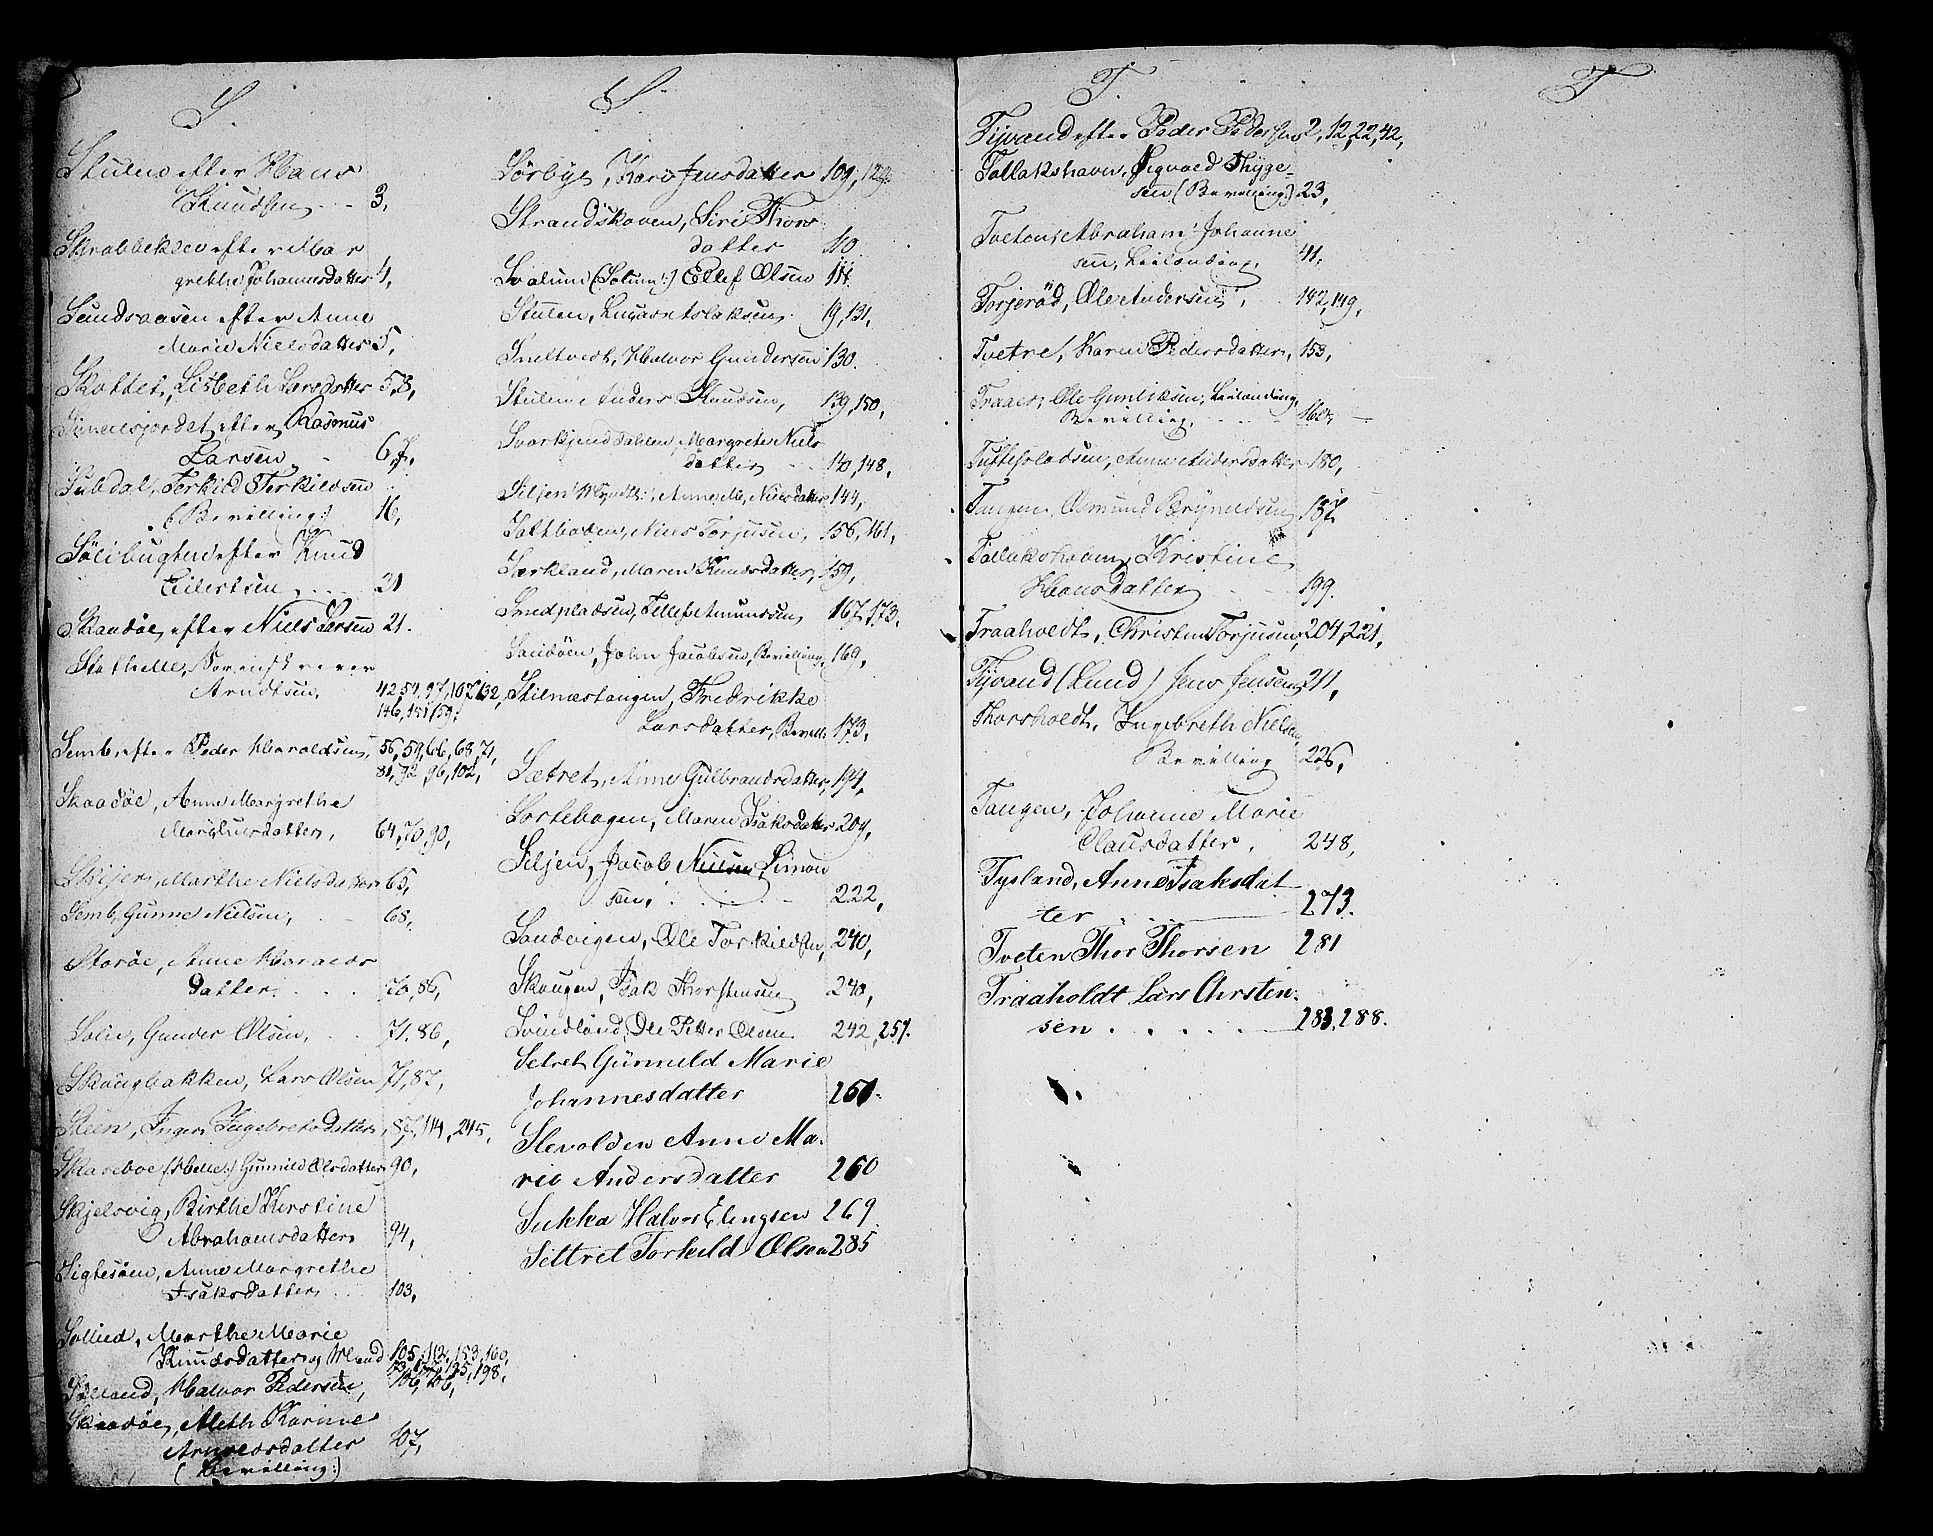 S.
Stulen efter Hans
Knudsen 3,
Skrabbeklev efter Mar
grethe Johannesdatter 4,
Sundsaasen efter Anne
Marie Nielsdatter 5,
Skottet, Lisbeth Larsdatter 5, 8,
efter Rasmus
Larsen 6, 7,
Subdal, Terkild Terkildsen
(Bevilling:) 16,
Sölibugten efter Knud
Eilertsen 21
Skaadöe, efter Niels Larsen 21.
Stathelle,
Arndtsen, 42, 54, 97, 107, 132,
146, 151, 159,
Semb efter Peder Haraldsen, 56, 59, 66, 68, 71,
81, 92, 96, 102,
Skaadöe, Anne Margrethe
64, 70, 90,
Marthe Nielsdatter 65,
Semb, Gunne Nielsen, 68,
Storöe, Anne Haralds
datter 76, 86,
Solie, Gunder Olsen, 71, 86,
Skougbakken, Lars Olsen 71, 87,
Steen, Inger Ingebretsdatter, 87, 114, 245,
Skareboe (Helle:) Gunnild Olsdatter 90,
Skjelsvig, Birthe Kirstine
Abrahamsdatter 94,
Sigtesöen, Anne Margrethe
Isaksdatter 103,
Sollied, Marthe Marie
Knudsdatter og Mand 105, 112, 153, 160,
198,
Halvor Pedersen, 106, 106,
Skaadöe, Aleth Karine
Arnoldsdatter 107,
(Bevilling:)
S.
Sörbye, Kari Jensdatter 109, 129,
Strandskoven, Siri Thors
datter 110
Svalund (Solum:) Ellef Olsen 111.
Stulen, Lucas Aslaksen 19, 131,
Sneltvedt, Halvor Gundersen 130.
Stulen Anders Knudsen, 139, 150,
Margrete Niels
datter 140, 148,
Siljen Anne M. Nielsdatter 144,
Saltboden, Niels Torjusen, 156, 161,
Særkland, Maren Knudsdatter, 159,
Smedpladsen, Tellef Amundsen 167, 173,
Sandöen, John Jacobsen, Bevilling, 169,
Stilnæstangen, Fredrikke
Larsdatter, Beville 173,
Sætret, Anne Gulbrandsdatter, 194,
Sortebogen, Maren Isaksdatter 209,
Siljen, Jacob Simon
sen, 222,
Sandvigen, Ole Torkildsen, 240,
Skougen, Isak Thorstensen 240,
Svindland, Ole Petter Olsen 242, 257.
Setret Günneld Marie
Johannesdatter 260.
Slevolden Anne Ma.
rie Andersdatter 260
Sukka Halvor Elingsen 269
Settret Torkeld Olsen 285
T.
Tijvand efter Peder Pedersen 2, 12, 22, 42,
Tallakshavn, Sigvald Thyge-
sen (Bevilling:) 23,
Tveten, Abraham Johanne
sen, Leilending, 41,
Torjeröd, Ole Andersen, 142, 149,
Tvetre, Karen Pedersdatter, 153,
Traaer, Ole Gunliksen, Leilending,
Bevilling,
Tuftepladsen, Anne Andersdatter 180,
Tangen, Osmund Brynildsen 187
Tallakshavn, Kristine
Hansdatter 199.
Traaholdt, Christen Torjusen, 204, 221,
Tijvand (Lund) Jens Jensen 211,
Thorsholdt, Ingebreth Nielsen,
Bevilling 226,
Tangen, Johanne Marie
Clausdatter, 248,
Tysland, Anne Isaksdat
ter 273.
Tveten Thor Thorsen 281
Traaholdt Lars Chrsten-
sen 283, 288.
T